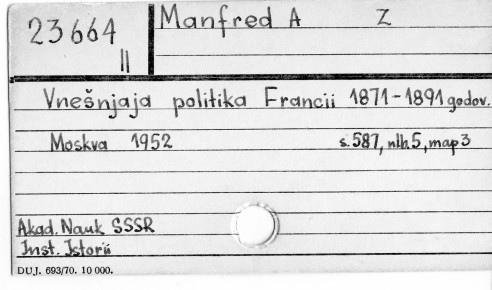 23664
II
Manfred A Z
Vnešnjaja politika Francii 1871-1891 godov.
Moskva 1952 s.587, nlh.5, map 3
Akad. Nauk SSSR
Inst. Istorii
DUJ. 693/70. 10 000.